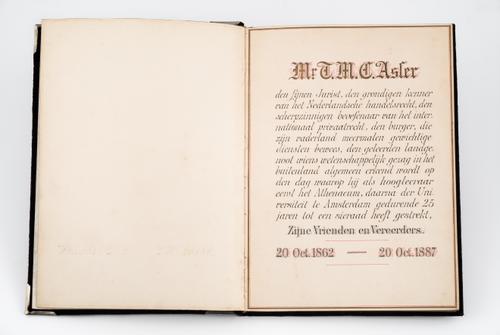 Mr T. M. C. Asser
den fijnen Jurist, den grondigen kenner
van het Nederlandsche handelsrecht, den
scherpzinnigen beoefenaar van het inter-
nationaal privaatrecht, den burger, die
zijn vaderland meermalen gewichtige
diensten bewees, den geleerden landge-
noot wiens wetenschappelijk gezag in het
buitenland algemeen erkend wordt op
den dag waarop hij als hoogleeraar
eerst het Athenaeum, daarna der Uni-
versiteit te Amsterdam gedurende 25
jaren tot een sieraad heeft gestrekt,
Zijne Vrienden en Vereerders.
20 Oct. 1862 — 20 Oct. 1887